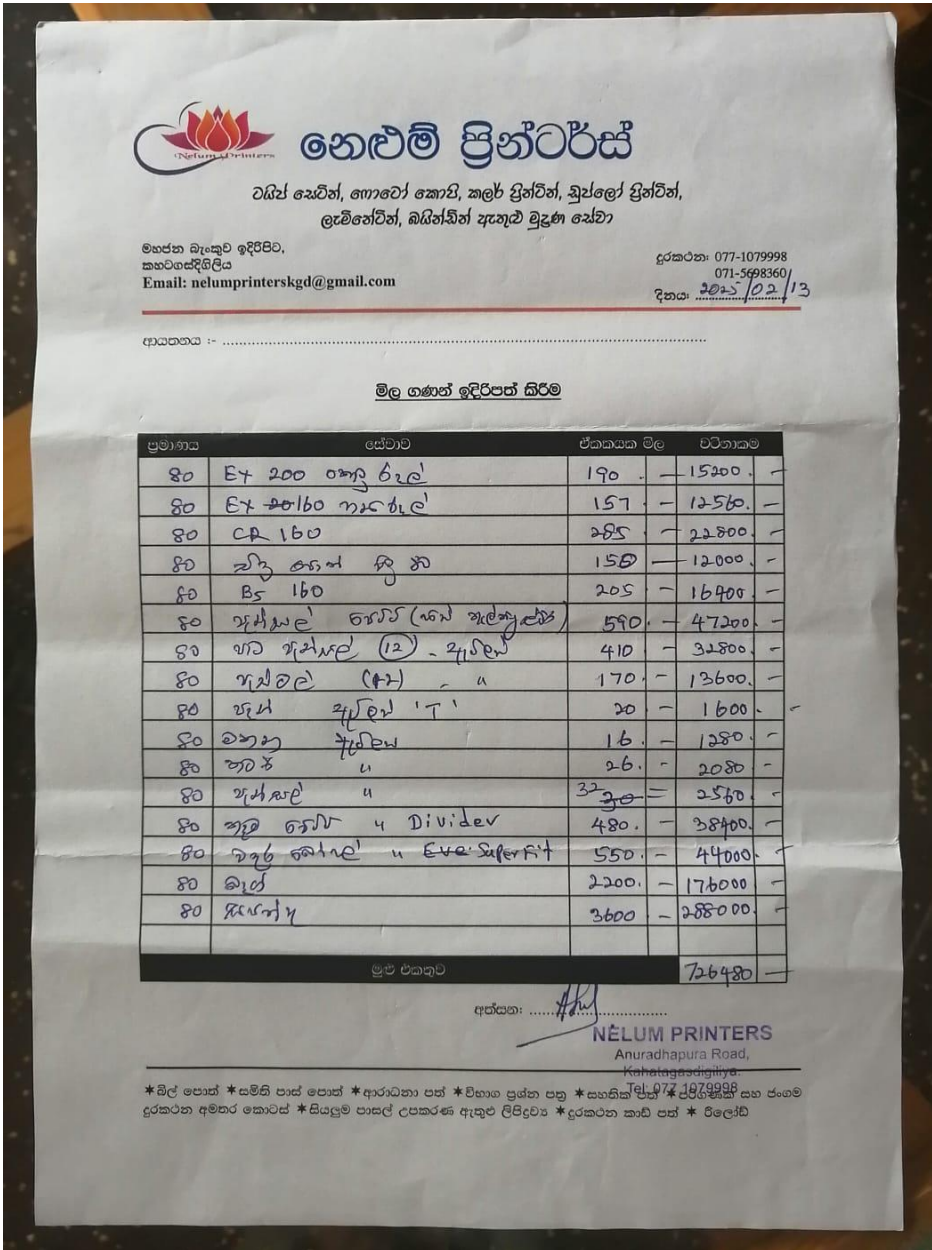 Nelum Printers
නෙළුම් ප්‍රින්ටර්ස්
ටයිප් සෙටින්, ෆොටෝ කොපි, කලර් ප්‍රින්ටින්, ඩුප්ලෝ ප්‍රින්ටින්,
ලැමිනේටින්, බයින්ඩින් ඇතුළු මුද්‍රණ සේවා
මහජන බැංකුව ඉදිරිපිට,
කහටගස්දිගිලිය
Email: nelumprinterskgd@gmail.com
දුරකථන: 077-1079998
071-5698360
දිනය: 2025/02/13
ආයතනය :-
මිල ගණන් ඉදිරිපත් කිරීම
ප්‍රමාණය සේවාව ඒකකයක මිල වටිනාකම
80 EX 200 රුල් 190 - 15200 -
80 EX 160 රුල් 157 - 12560 -
80 CR 160 285 - 22800 -
80 80 150 - 12000 -
80 B5 160 205 - 16400 -
80 පැන්සල් 590 - 47200 -
80 පාට පැන්සල් (12) - ඇට්ලස් 410 - 32800 -
80 පැස්ටල් (12) - " 170 - 13600 -
80 පෑන් ඇට්ලස් 'T' 20 - 1600 -
80 මකන ඇට්ලස් 16 - 1280 -
80 කටර් " 26 - 2080 -
80 පැන්සල් " 32 = 2560 -
80 කෑම " Divider 480 - 38400 -
80 වතුර බෝතල් " Eve Super Fit 550 - 44000 -
80 බෑග් 2200 - 176000 -
80 සපත්තු 3600 - 288000 -
මුළු එකතුව 726480 -
අත්සන:
NELUM PRINTERS
Anuradhapura Road,
Kahatagasdigiliya.
Tel: 077 1079998
✶බිල් පොත් ✶සමිති පාස් පොත් ✶ආරාධනා පත් ✶විභාග ප්‍රශ්න පත්‍ර ✶සහතික පත් ✶පරිගණක සහ ජංගම
දුරකථන අමතර කොටස් ✶සියලුම පාසල් උපකරණ ඇතුළු ලිපිද්‍රව්‍ය ✶දුරකථන කාඩ් පත් ✶ රීලෝඩ්